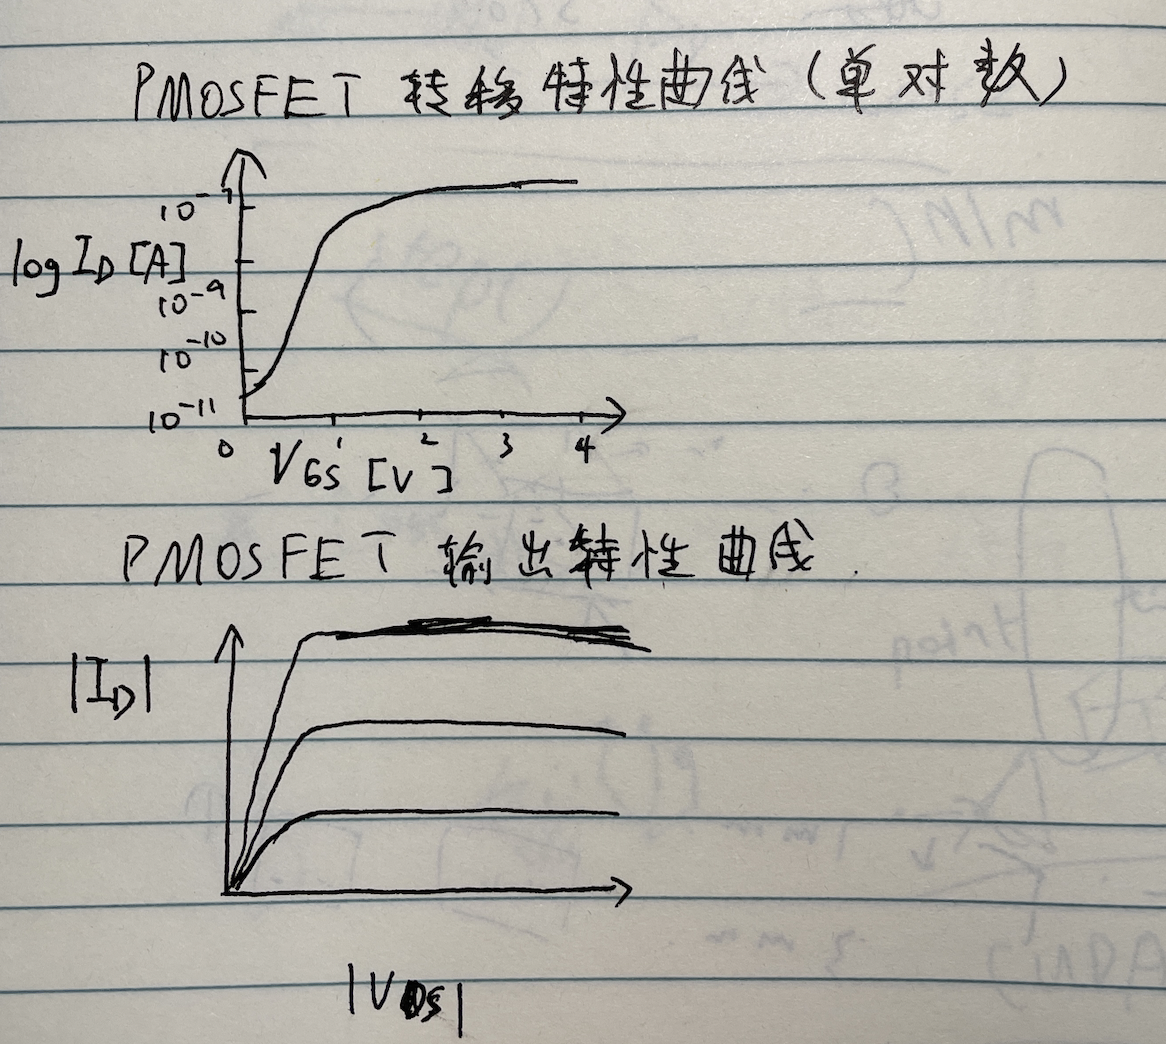 PMOSFET 转移特性曲线（单对数）
10⁻⁷
log I_D [A]
10⁻⁹
10⁻¹⁰
10⁻¹¹
0 1 2 3 4
V_GS [V]
PMOSFET 输出特性曲线
|I_D|
|V_DS|